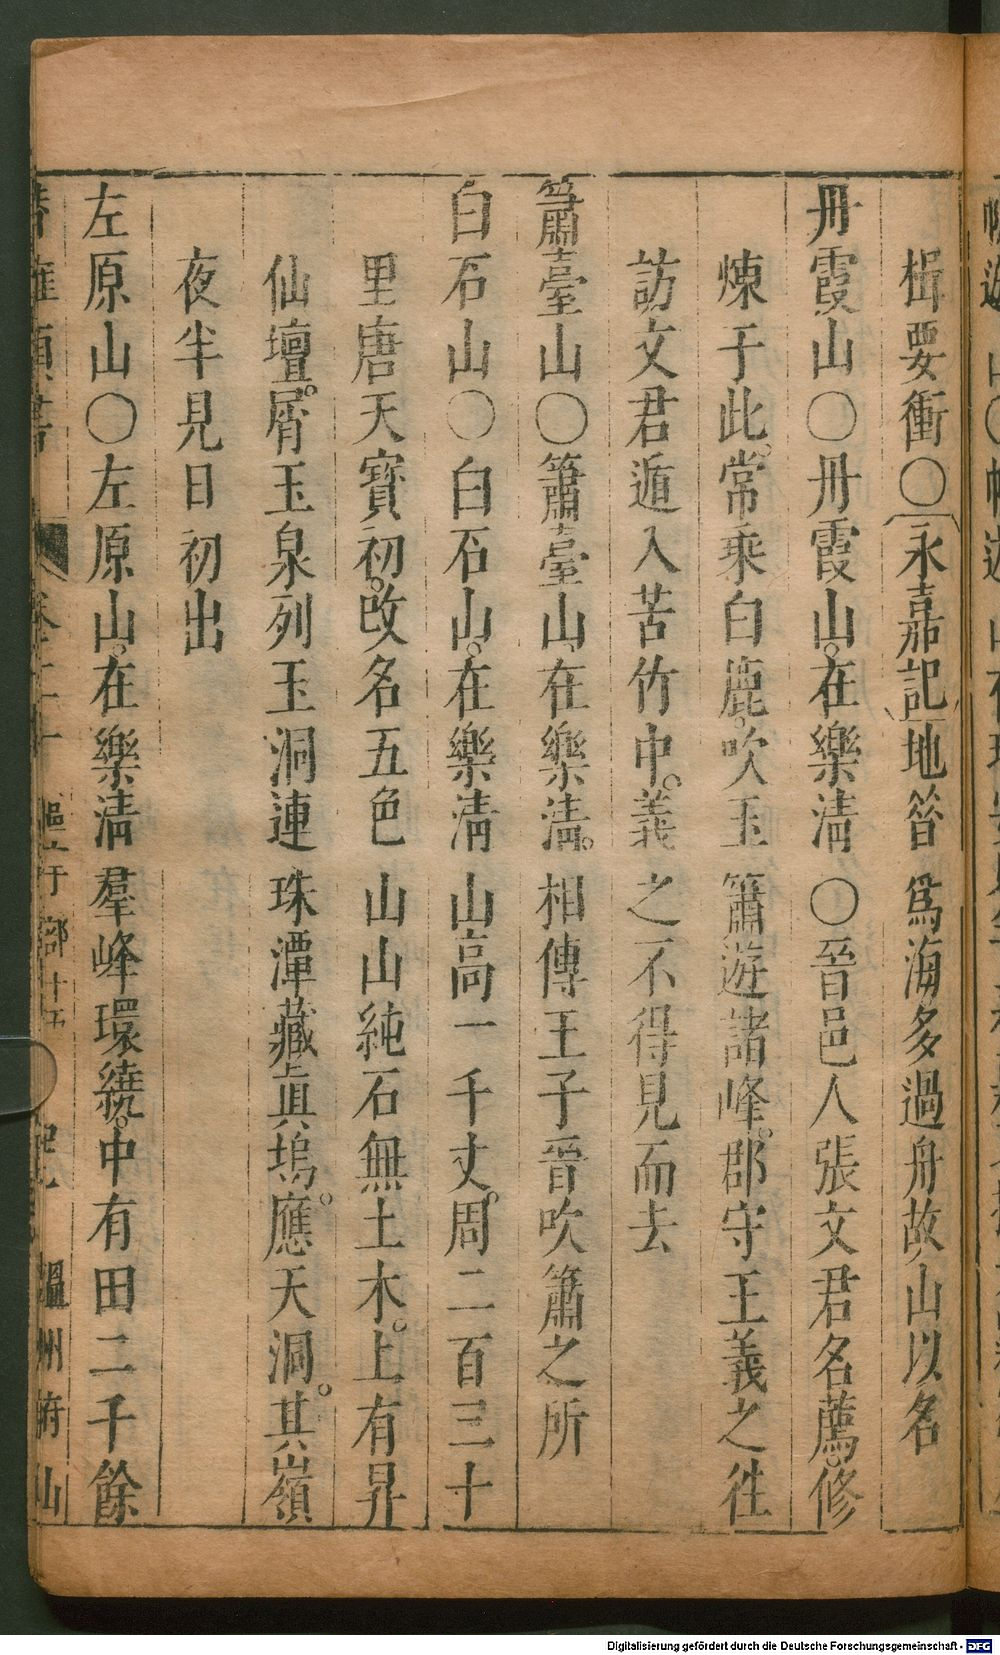 楫要衝〇永嘉記地昝爲海多過舟故山以名
丹霞山〇丹霞山。在樂淸〇晉邑人張文君名薦。修
煉于此。常乘白鹿。吹玉簫遊諸峰。郡守王義之徃
訪文君遁入苦竹中。義之不得見而去
簫臺山〇簫臺山、在樂淸。相傳王子晉吹簫之所
白石山〇白石山。在樂淸山高一千丈。周二百三十
里唐天寶初。改名五色山山純石無土木。上有昇
仙壇。屑玉泉列玉洞連珠潭藏眞塢。應天洞。其嶺
夜半見日初出
左原山〇左原山。在樂淸羣峰環繞。中有田二千餘
溫州府山
Digitalisierung gefördert durch die Deutsche Forschungsgemeinschaft - DFG